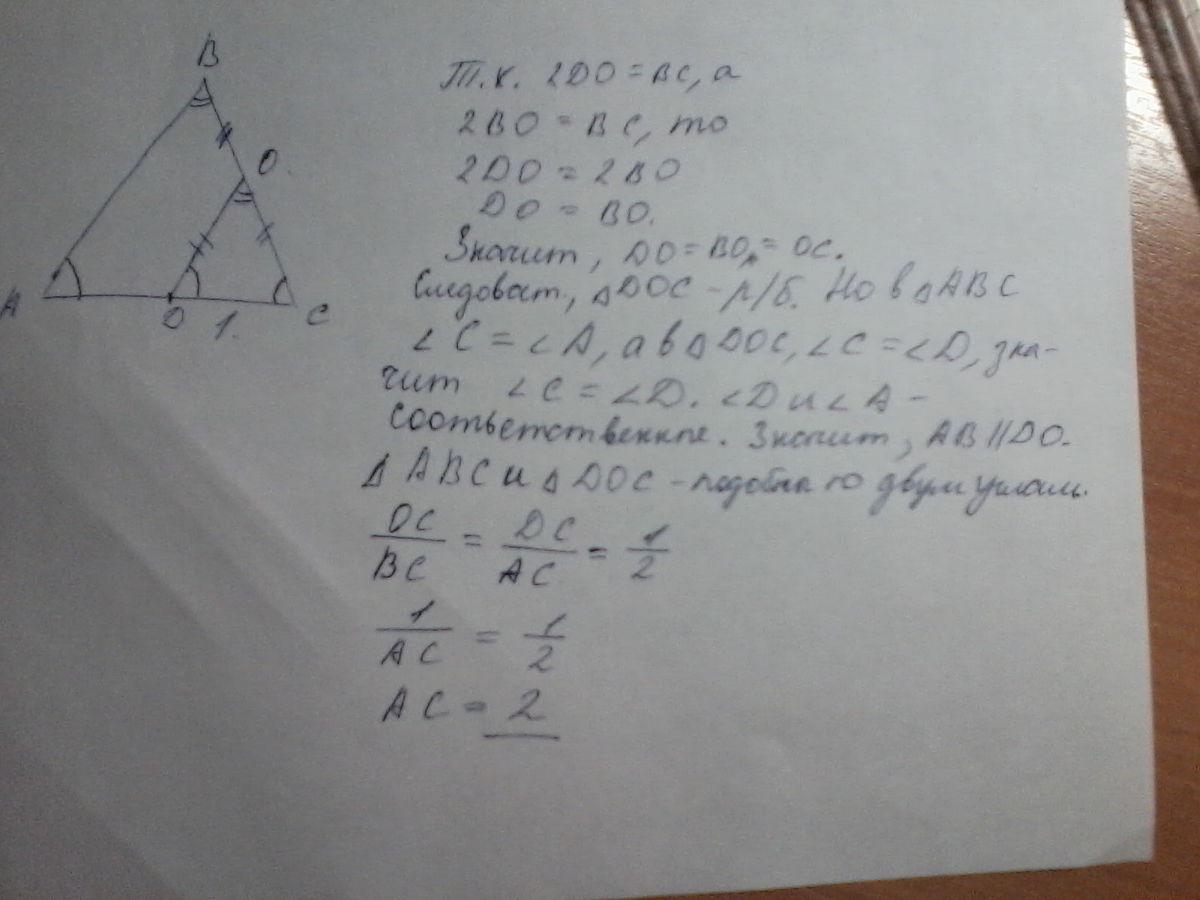 B
O
A
D
1.
C
Т.к. 2DO = BC, а
2BO = BC, то
2DO = 2BO
DO = BO.
Значит, DO = BO = OC.
Следоват., △DOC - р/б. Но в △ABC
∠C = ∠A, а в △DOC, ∠C = ∠D, зна-
чит ∠C = ∠D. ∠D и ∠A -
соответственные. Значит, AB || DO.
△ABC и △DOC - подобны по двум углам.
OC/BC = DC/AC = 1/2
1/AC = 1/2
AC = 2